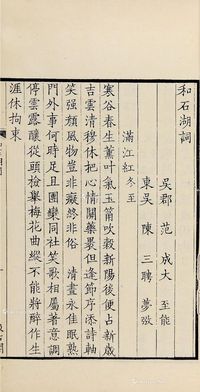 和石湖詞
吳郡 范 成大 至能
東吳 陳 三聘 夢弼
滿江紅冬至
寒谷春生薰葉氣玉筩吹穀新陽後便占新歲
吉雲清穆休把心情關藥裹但逢節序添詩軸
笑強顏風物豈非癡終非俗 清晝永佳眠熟
門外事何時足且團欒同社笑歌相屬著意調
停雲露釀從頭檢舉梅花曲縱不能將醉作生
涯休拘束